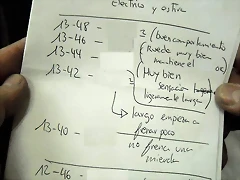 Electrico y estira
13-48 -
13-46 -
13-44 -
13-42 -
I (buen comportamiento
(Rueda muy bien
mantiene el
I (Muy bien
sensación
ligeramente larga)
→ largo empieza a
frenar poco
13-40 -
no frena una
mierda
12-46 -